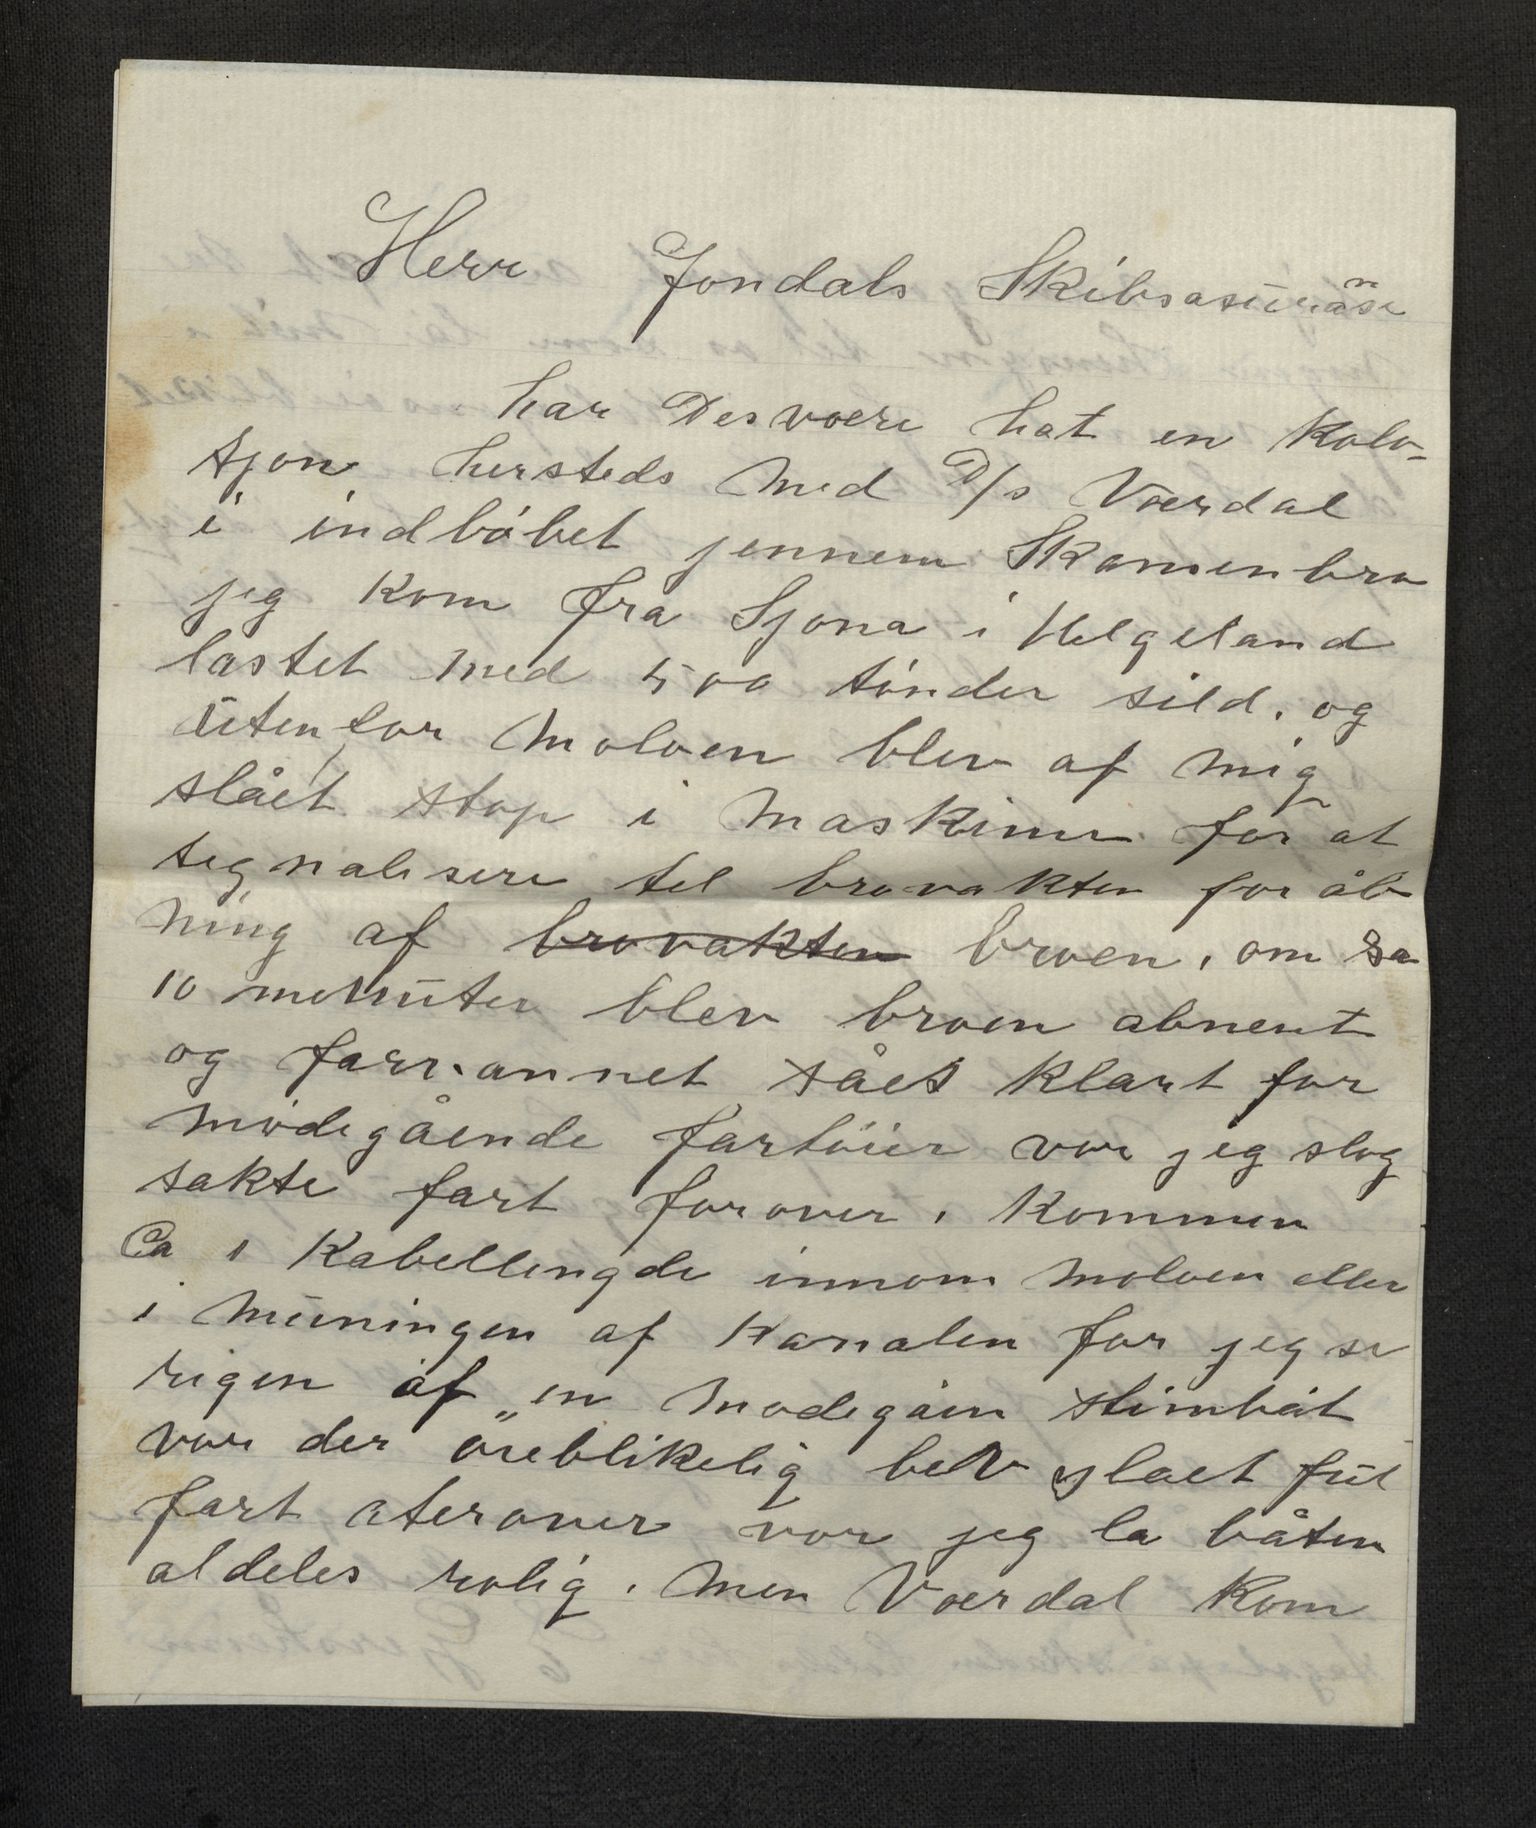 Herr Jondals Skibsasuranse
har Desvoere hat en Kolo-
sjon hersteds med D/s Værdal
i indlöbet jennem Skansenbro
jeg Kom fra Sjona i Helgeland
lastet med 500 tönder sild. og
utenfor Moloen blev af mig
slået stop i Maskinen for at
signalisere til brovakten for åb
ning af brovakten broen, om ca
10 menuter blev broen abnent
og farvannet såes Klart for
mödegående fartöier vor jeg slog
sakte fart forover, Kommen
Ca 1 Kabellengde innom Moloen eller
i Muningen af Kanalen for jeg se
rigen af en Modegåen stimbåt
vor der öieblikelig belv slaet ful
fart aterover vor jeg la båten
aldeles rolig. Men Værdal Kom